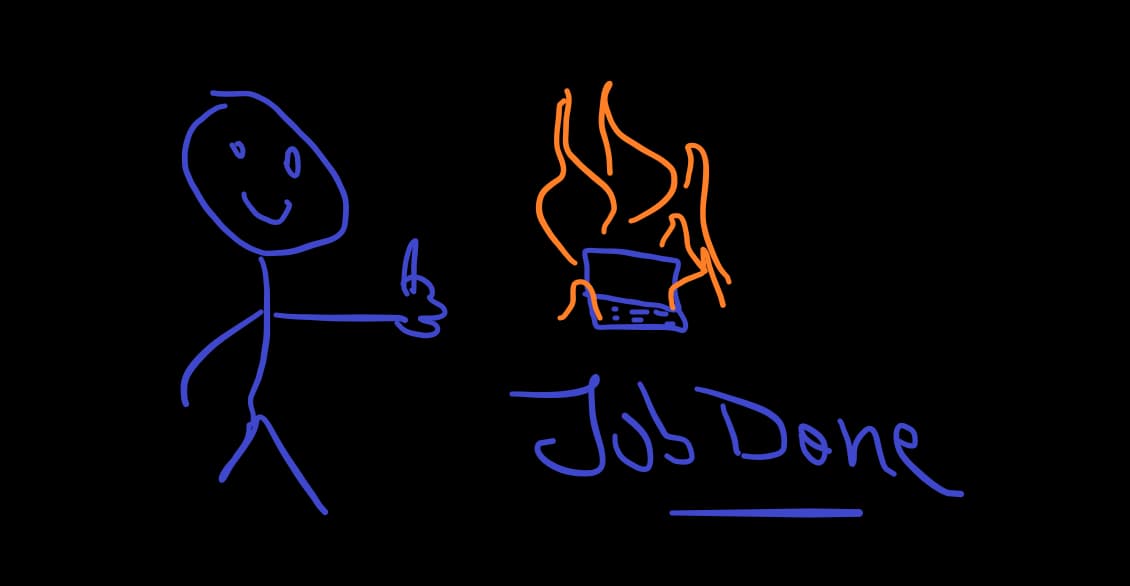 Job Done